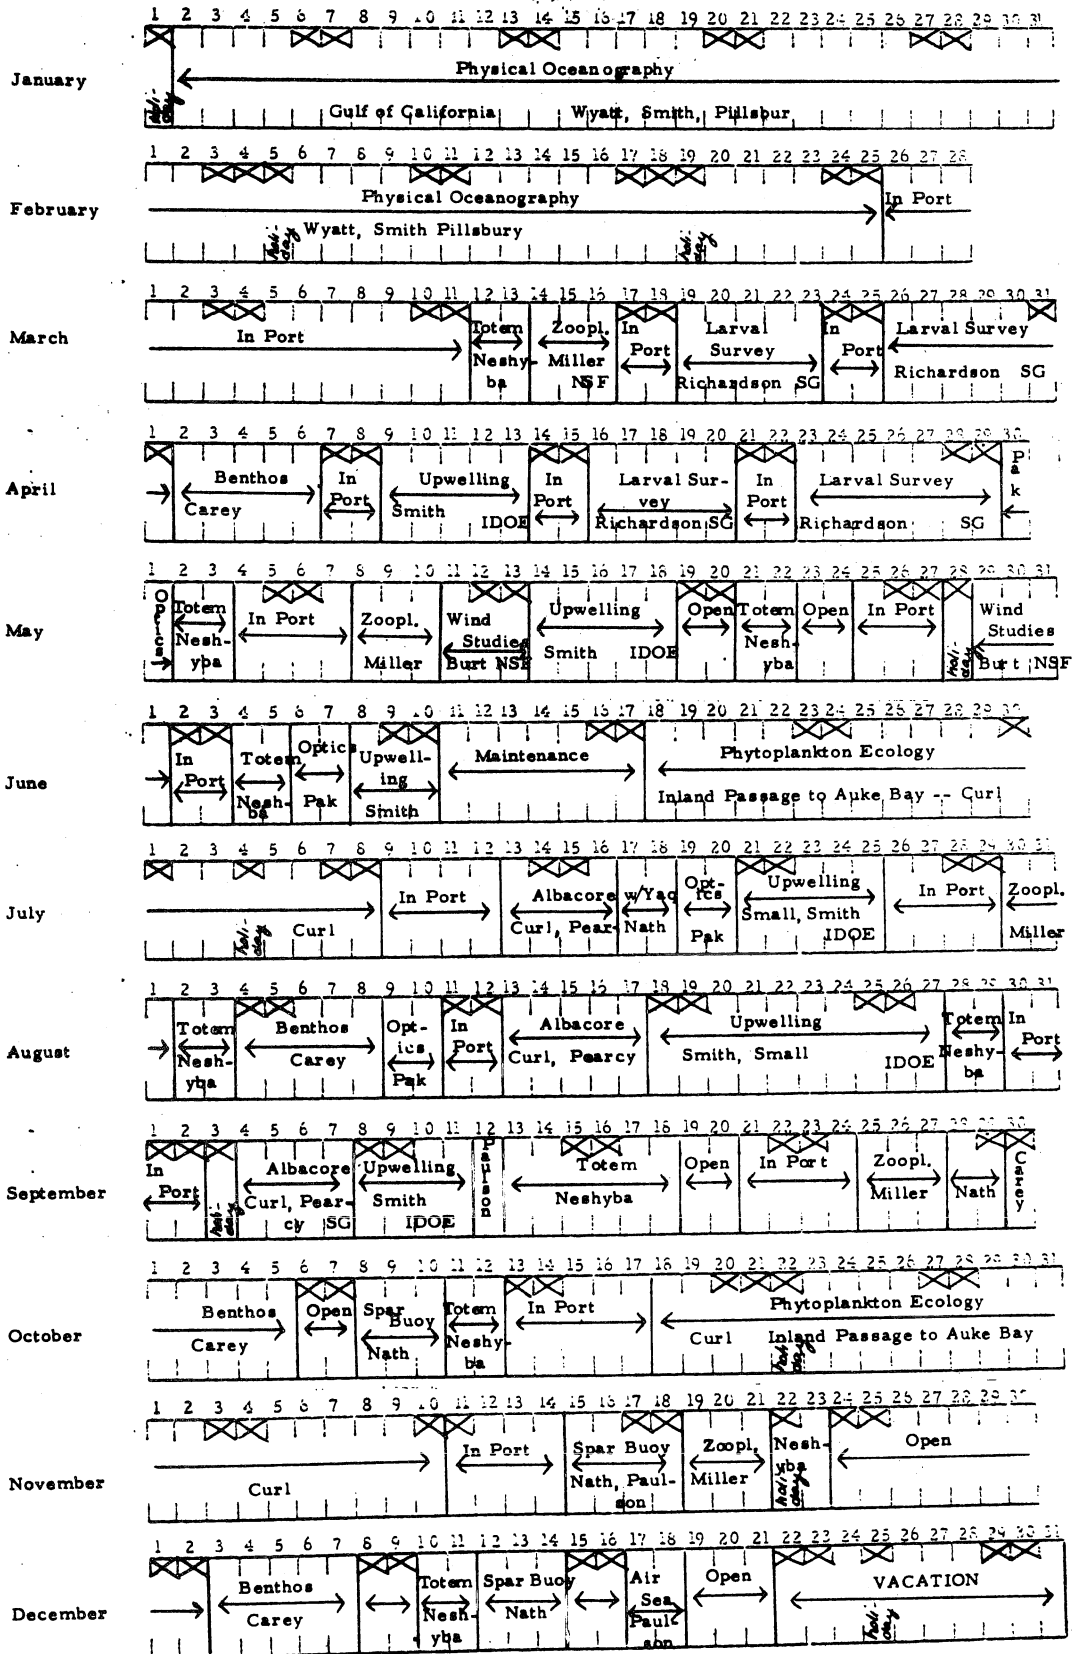 1 2 3 4 5 6 7 8 9 10 11 12 13 14 15 16 17 18 19 20 21 22 23 24 25 26 27 28 29 30 31
January
Physical Oceanography
holi-
day
Gulf of California Wyatt, Smith, Pillsbur
1 2 3 4 5 6 7 8 9 10 11 12 13 14 15 16 17 18 19 20 21 22 23 24 25 26 27 28
February
Physical Oceanography In Port
Wyatt, Smith Pillsbury
holi-
day
holi-
day
1 2 3 4 5 6 7 8 9 10 11 12 13 14 15 16 17 18 19 20 21 22 23 24 25 26 27 28 29 30 31
March
In Port
Totem
Neshy-
ba
Zoopl.
Miller
NSF
In
Port
Larval
Survey
Richardson SG
In
Port
Larval Survey
Richardson SG
1 2 3 4 5 6 7 8 9 10 11 12 13 14 15 16 17 18 19 20 21 22 23 24 25 26 27 28 29 30
April
Benthos
Carey
In
Port
Upwelling
Smith
IDOE
In
Port
Larval Sur-
vey
Richardson SG
In
Port
Larval Survey
Richardson SG
Pak
1 2 3 4 5 6 7 8 9 10 11 12 13 14 15 16 17 18 19 20 21 22 23 24 25 26 27 28 29 30 31
May
Optics
Totem
Nesh-
yba
In Port
Zoopl.
Miller
Wind
Studies
Burt NSF
Upwelling
Smith IDOE
Open
Totem
Nesh-
yba
Open
In Port
holi-
day
Wind
Studies
Burt NSF
1 2 3 4 5 6 7 8 9 10 11 12 13 14 15 16 17 18 19 20 21 22 23 24 25 26 27 28 29 30
June
In
Port
Totem
Nesh-
ba
Optics
Pak
Upwell-
ing
Smith
Maintenance
Phytoplankton Ecology
Inland Passage to Auke Bay -- Curl
1 2 3 4 5 6 7 8 9 10 11 12 13 14 15 16 17 18 19 20 21 22 23 24 25 26 27 28 29 30 31
July
holi-
day
Curl
In Port
Albacore
Curl, Pear-
w/Yaq
Nath
Opt-
ics
Pak
Upwelling
Small, Smith
IDOE
In Port
Zoopl.
Miller
1 2 3 4 5 6 7 8 9 10 11 12 13 14 15 16 17 18 19 20 21 22 23 24 25 26 27 28 29 30 31
August
Totem
Nesh-
yba
Benthos
Carey
Opt-
ics
Pak
In
Port
Albacore
Curl, Pearcy
Upwelling
Smith, Small
IDOE
Totem
Neshy-
ba
In
Port
1 2 3 4 5 6 7 8 9 10 11 12 13 14 15 16 17 18 19 20 21 22 23 24 25 26 27 28 29 30
September
In
Port
holi-
day
Albacore
Curl, Pear-
cy SG
Upwelling
Smith
IDOE
Paulson
Totem
Neshyba
Open
In Port
Zoopl.
Miller
Nath
Carey
1 2 3 4 5 6 7 8 9 10 11 12 13 14 15 16 17 18 19 20 21 22 23 24 25 26 27 28 29 30 31
October
Benthos
Carey
Open
Spar
Buoy
Nath
Totem
Neshy-
ba
In Port
Phytoplankton Ecology
Curl Inland Passage to Auke Bay
holi-
day
1 2 3 4 5 6 7 8 9 10 11 12 13 14 15 16 17 18 19 20 21 22 23 24 25 26 27 28 29 30
November
Curl
In Port
Spar Buoy
Nath, Paul-
son
Zoopl.
Miller
Nesh-
yba
holi-
day
Open
1 2 3 4 5 6 7 8 9 10 11 12 13 14 15 16 17 18 19 20 21 22 23 24 25 26 27 28 29 30 31
December
Benthos
Carey
Totem
Nesh-
yba
Spar Buoy
Nath
Air
Sea
Paul-
son
Open
VACATION
holi-
day